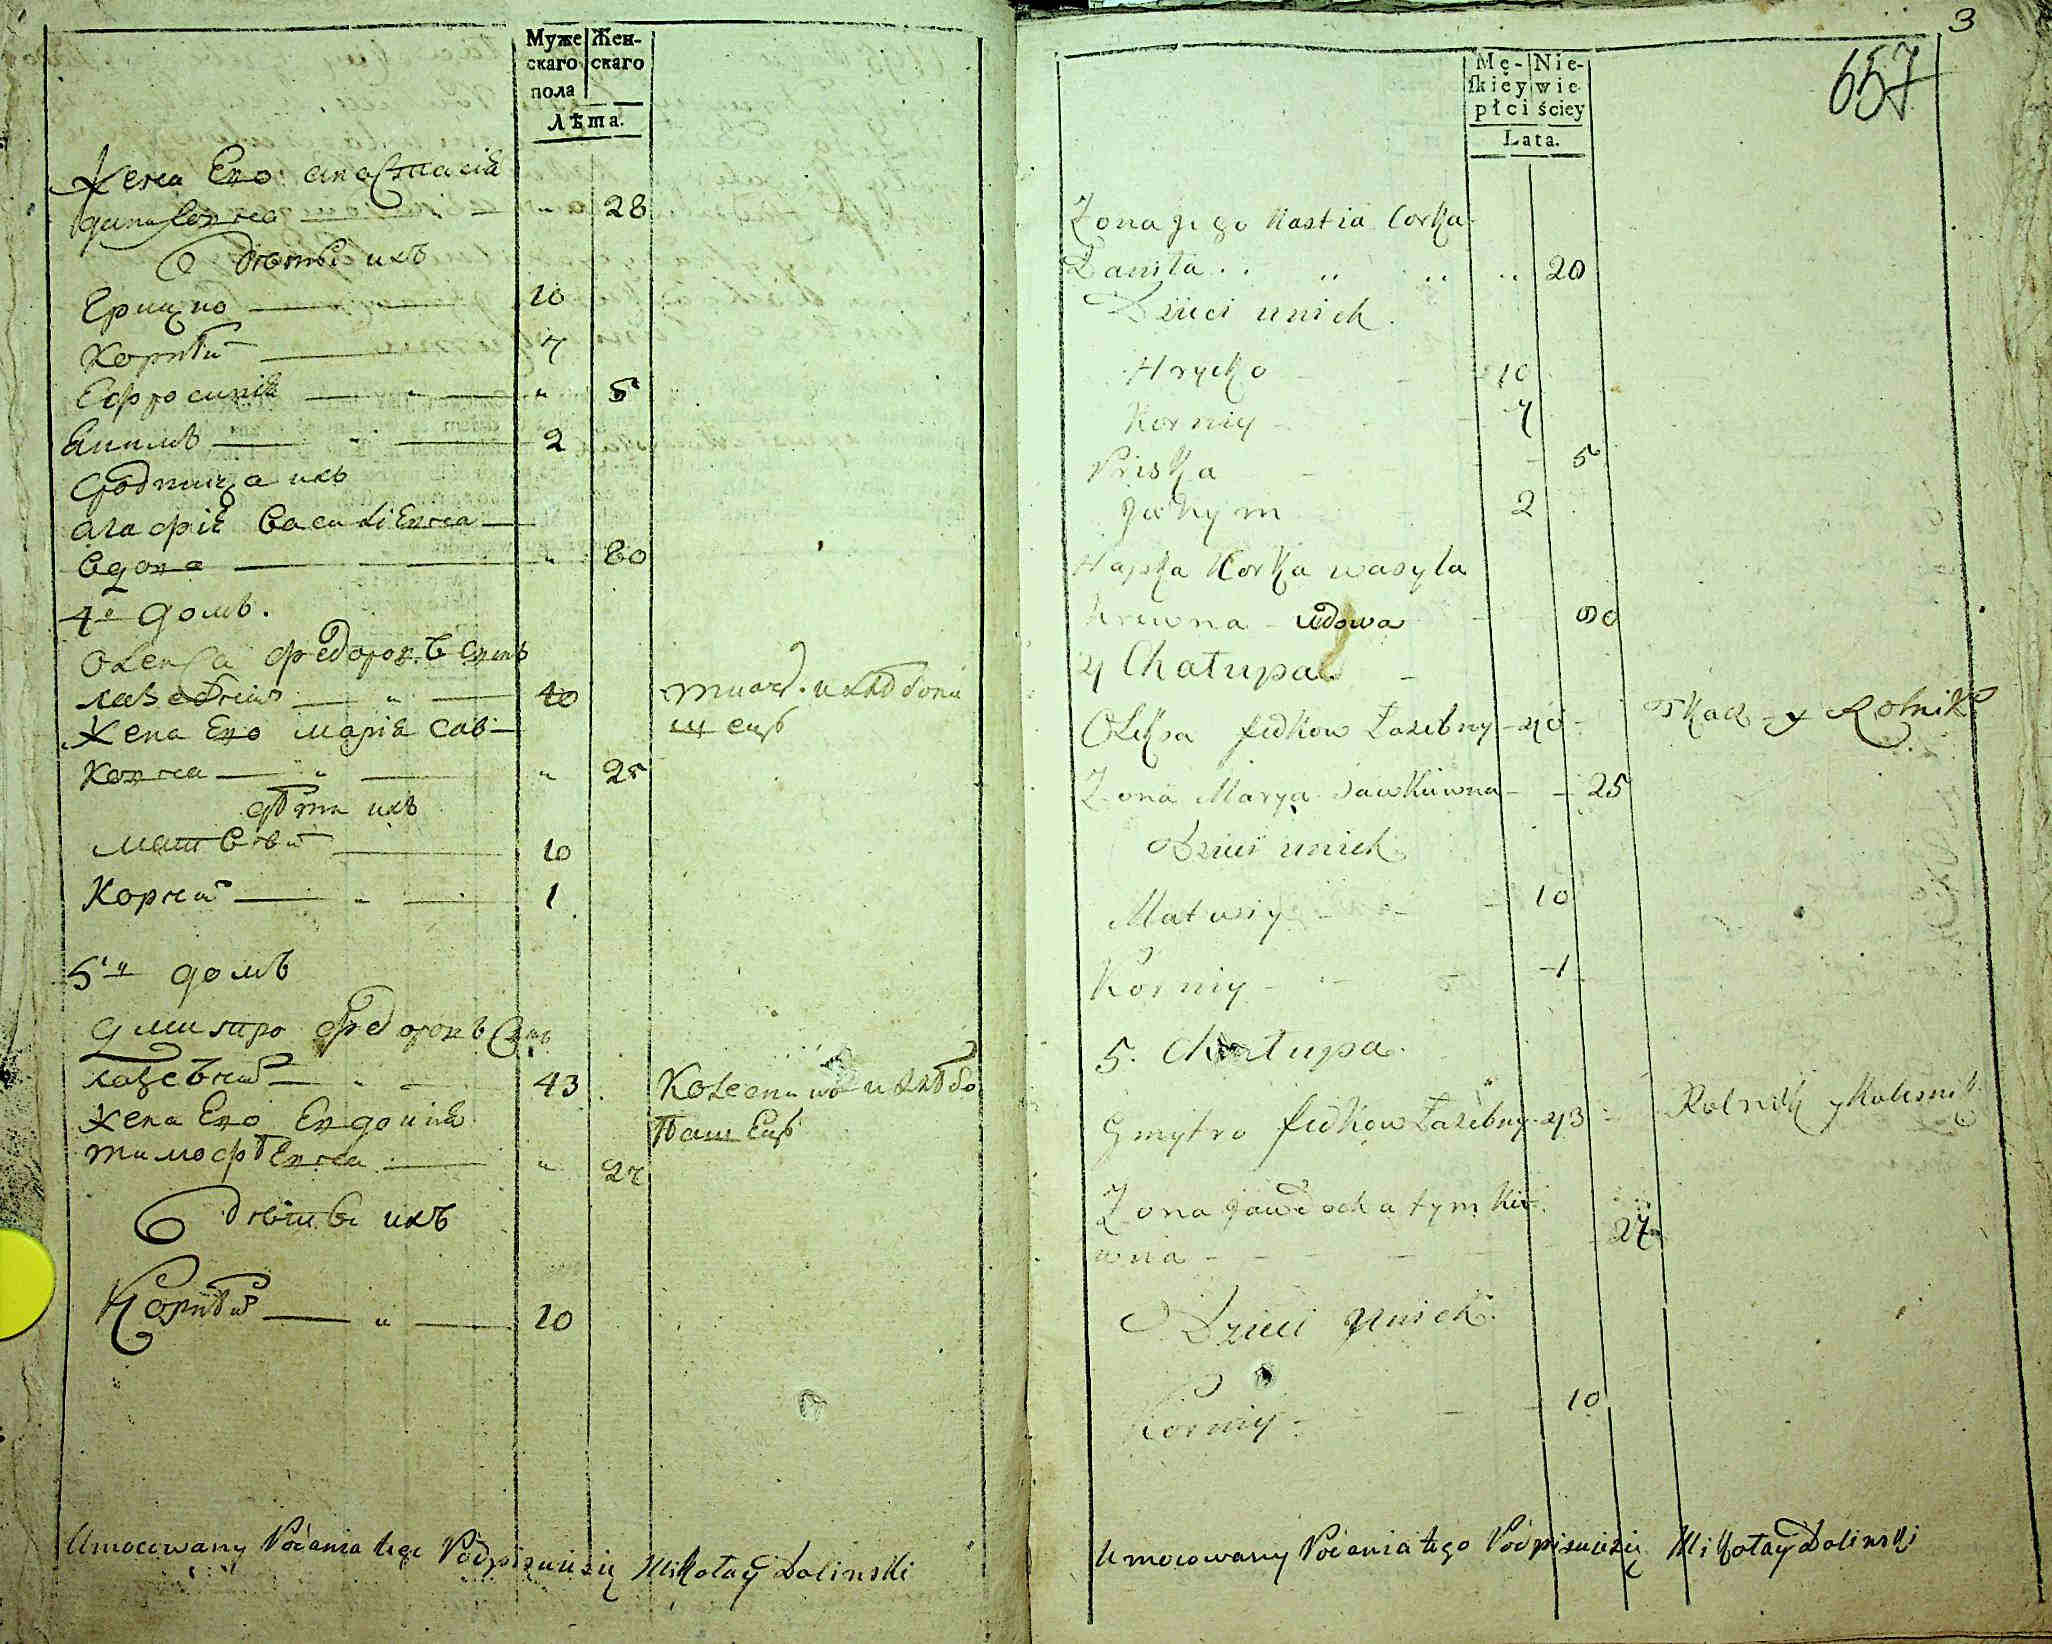 Муже Жен-
скаго скаго
пола
Лѣта.
Жена Его анастасія
данилова 28
дѣтьи ихъ
Грицко 10
Корнѣй 7
Ефросинія 5
Екимъ 2
Сродница ихъ
агафія василіева
вдова 80
4й домъ.
Олекса федоровъ Сынъ
Лазебний 40
Жена Его марія сав-
кова 25
дѣти ихъ
матвѣй 10
Корней 1
5й домъ
дмитро федоровъ Сынъ
лазебней 43
Жена Его Евдокия
тимофѣева 27
дѣтьи ихъ
Корнѣй 10
Umocowany Podania tego Podpisuie się Mikołay Dolinski
3
657
Mę- Nie-
skiey wie
płci ściey
Lata.
Zona jego Nastia Corka
Daniła 28
Dzieci unich
Hrycko 10
Korniy 7
Priska 5
Jakym 2
Hapka Corka wasyla
Krewna wdowa 80
4 Chałupa
Oleksa fedkow Łazebny 40 Tkacz y Rolnik
Zona Marya Sawkuwna 25
Dzieci unich
Matwiy 10
Korniy 1
5. Chałupa
Dmytro fedkow Łazebny 43 Rolnik y Kolesnik
Zona Jawdocha tymkie
wna 27
Dzieci unich
Korniy 10
Umocowany Podania tego Podpisuie się Mikołay Dolinski